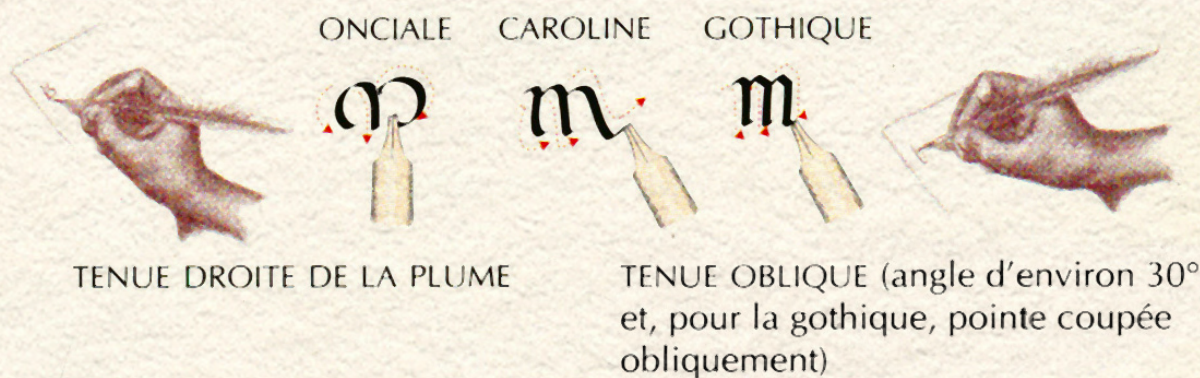 ONCIALE CAROLINE GOTHIQUE
m m m
TENUE DROITE DE LA PLUME
TENUE OBLIQUE (angle d'environ 30°
et, pour la gothique, pointe coupée
obliquement)